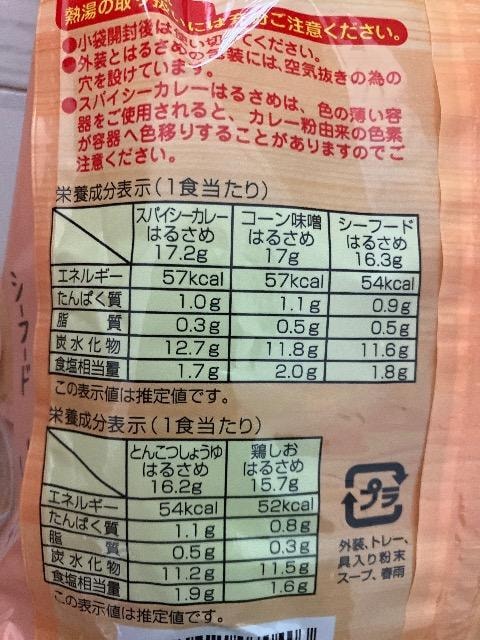 熱湯の取り扱いには充分ご注意ください。
●小袋開封後は使い切ってください。
●外装とはるさめの包装には、空気抜きの為の
穴を設けています。
●スパイシーカレーはるさめは、色の薄い容
器をご使用されると、カレー粉由来の色素
が容器へ色移りすることがありますのでご
注意ください。
栄養成分表示(1食当たり)
スパイシーカレーはるさめ17.2g コーン味噌はるさめ17g シーフードはるさめ16.3g
エネルギー 57kcal 57kcal 54kcal
たんぱく質 1.0g 1.1g 0.9g
脂質 0.3g 0.5g 0.5g
炭水化物 12.7g 11.8g 11.6g
食塩相当量 1.7g 2.0g 1.8g
この表示値は推定値です。
栄養成分表示(1食当たり)
とんこつしょうゆはるさめ16.2g 鶏しおはるさめ15.7g
エネルギー 54kcal 52kcal
たんぱく質 1.1g 0.8g
脂質 0.5g 0.3g
炭水化物 11.2g 11.5g
食塩相当量 1.9g 1.6g
この表示値は推定値です。
プラ
外装、トレー、
具入り粉末
スープ、春雨
シーフード